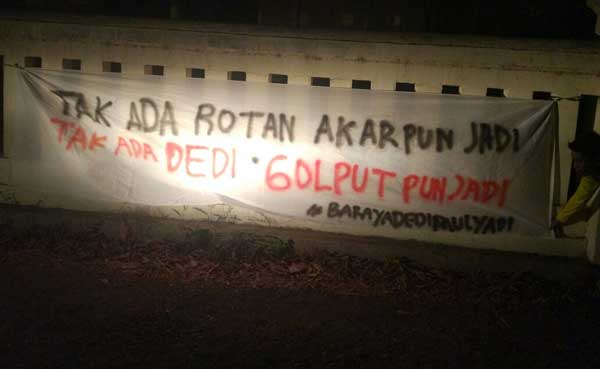 TAK ADA ROTAN AKAR PUN JADI
TAK ADA DEDI · GOLPUT PUN JADI
#BARAYADEDIMULYADI